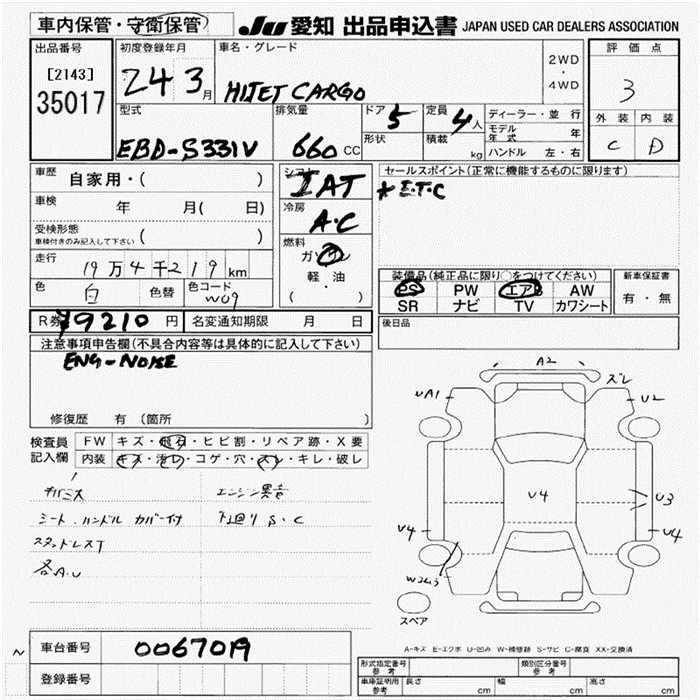 車内保管・守衛保管
JU 愛知 出品申込書 JAPAN USED CAR DEALERS ASSOCIATION
出品番号
[2143]
35017
初度登録年月
24 3月
車名・グレード
HIJET CARGO
2WD
・
4WD
評価点
3
外装 内装
C D
型式
EBD-S331V
排気量
660 CC
ドア 5
形状
定員 4人
積載 kg
ディーラー・並行
モデル年式 年
ハンドル 左・右
車歴 自家用・( )
車検 年 月( 日)
受検形態
車検付きのみ記入して下さい ( )
走行 19万4千219km
色 白 色替 色コード W09
シフト
IAT
冷房
A・C
燃料
ガソリン
軽・油
( )
セールスポイント(正常に機能するものに限ります)
* E.T.C
装備品(純正品に限り○をつけてください)
PS PW エアB AW
SR ナビ TV カワシート
新車保証書
有・無
R券 ¥9210 円 名変通知期限 月 日
後日品
注意事項申告欄(不具合内容等は具体的に記入して下さい)
ENG-NOISE
修復歴 有 (箇所 )
検査員記入欄
FW キズ・飛石・ヒビ割・リペア跡・X要
内装 キズ・汚れ・コゲ・穴・スレ・キレ・破レ
エンジン異音
シート.ハンドル カバー付 下回り S・C
スタッドレスT
各A.U
A2
ズレ
UA1
U2
U4
U3
U4
V4
W2U3
スペア
A-キズ E-エクボ U-凹み W-補修跡 S-サビ C-腐食 XX-交換済
車台番号 0067019
登録番号
形式指定番号 参考
類別区分番号 参考
車庫証明用 参考 長さ cm 幅 cm 高さ cm